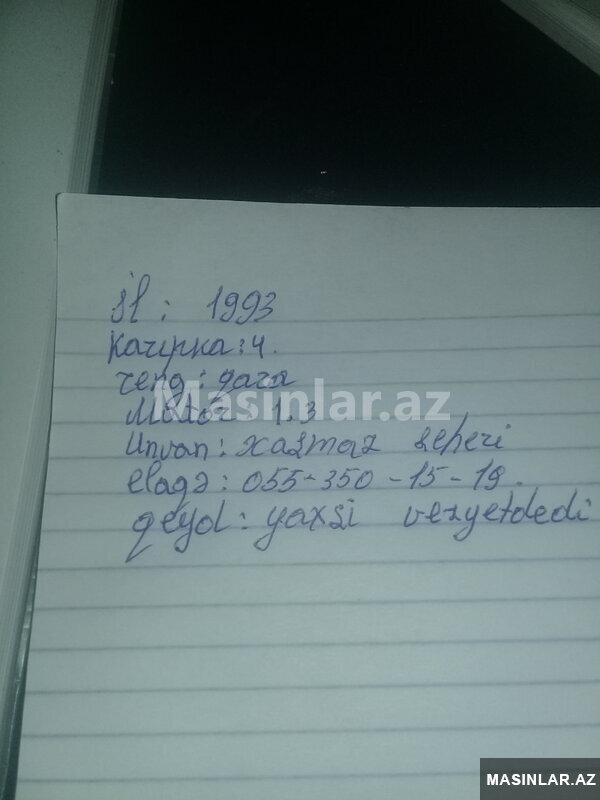 il: 1993
Karıpka: 4.
reng: qara
Motor 1.3
Unvan: xaşmaz şeheri
elaqə: 055-350-15-19.
qeyd: yaxşi vezyetdedi
Masinlar.az
MASINLAR.AZ